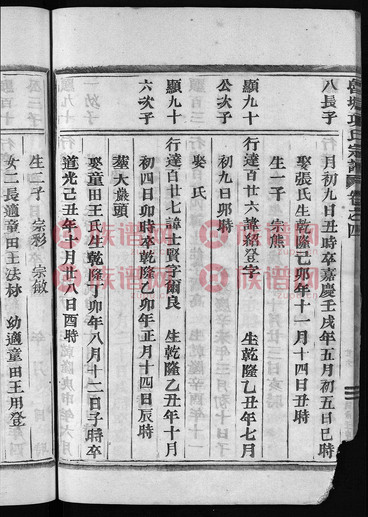 月初九日丑時卒嘉慶壬戌年五月初五日巳時
八長子
娶張氏生乾隆己卯年十一月十四日丑時
生一子 宗熊
顯九十
公次子
行達百廿六諱紹登字 生乾隆乙丑年七月
初九日卯時
娶 氏
顯九十
六次子
行達百廿七諱士賢字爾良 生乾隆乙丑年十月
初四日卯時卒乾隆乙卯年正月十四日辰時
葬大巖頭
娶童田王氏生乾隆丁卯年八月十二日子時卒
道光己丑年十月廿八日酉時
生二子 宗彩 宗敏
女二長適童田王法林 幼適童田王用登
族谱网